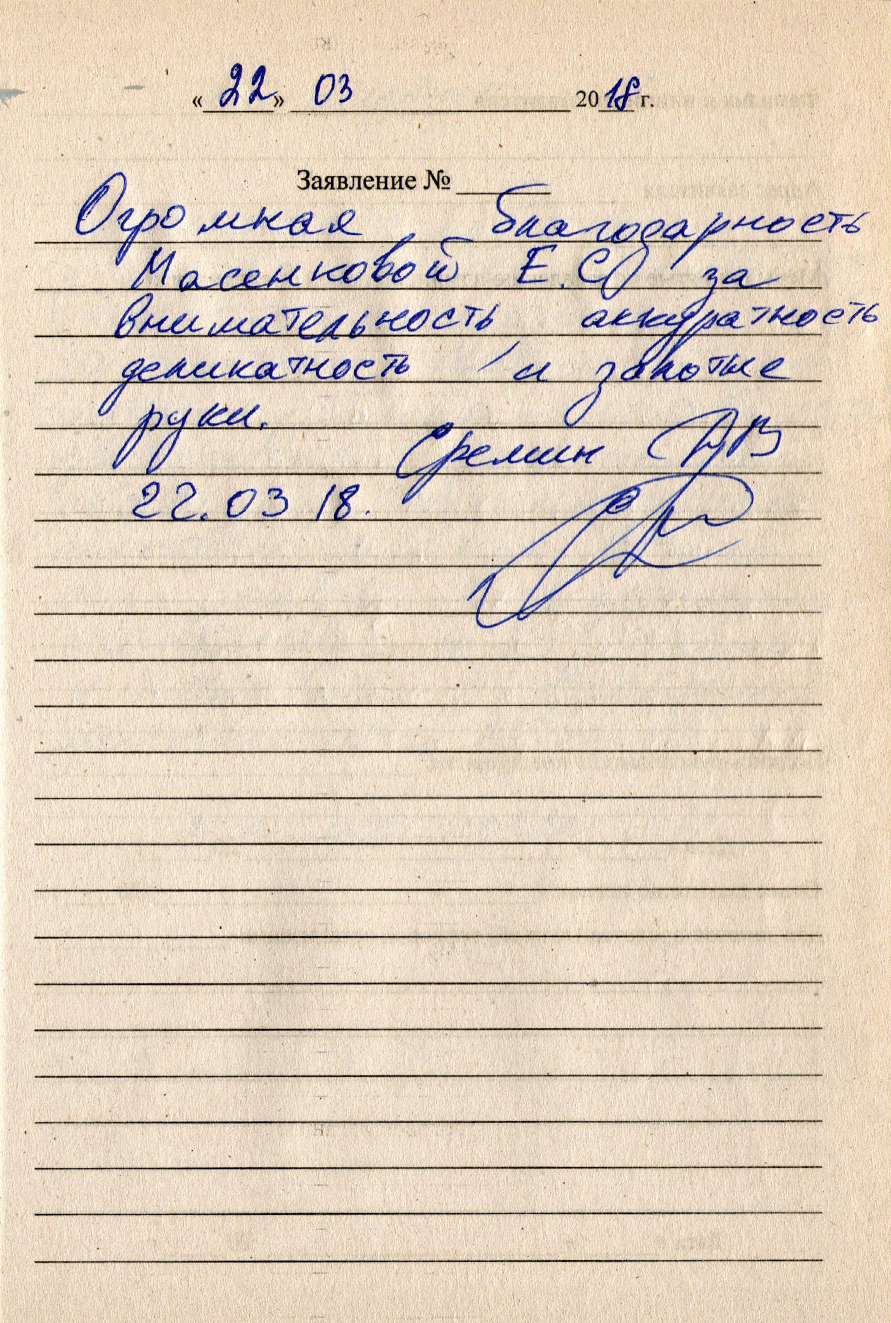 «22» 03 2018 г.
Заявление №
Огромная благодарность
Масенковой Е.С. за
внимательность аккуратность
деликатность и золотые
руки.
22.03 18.